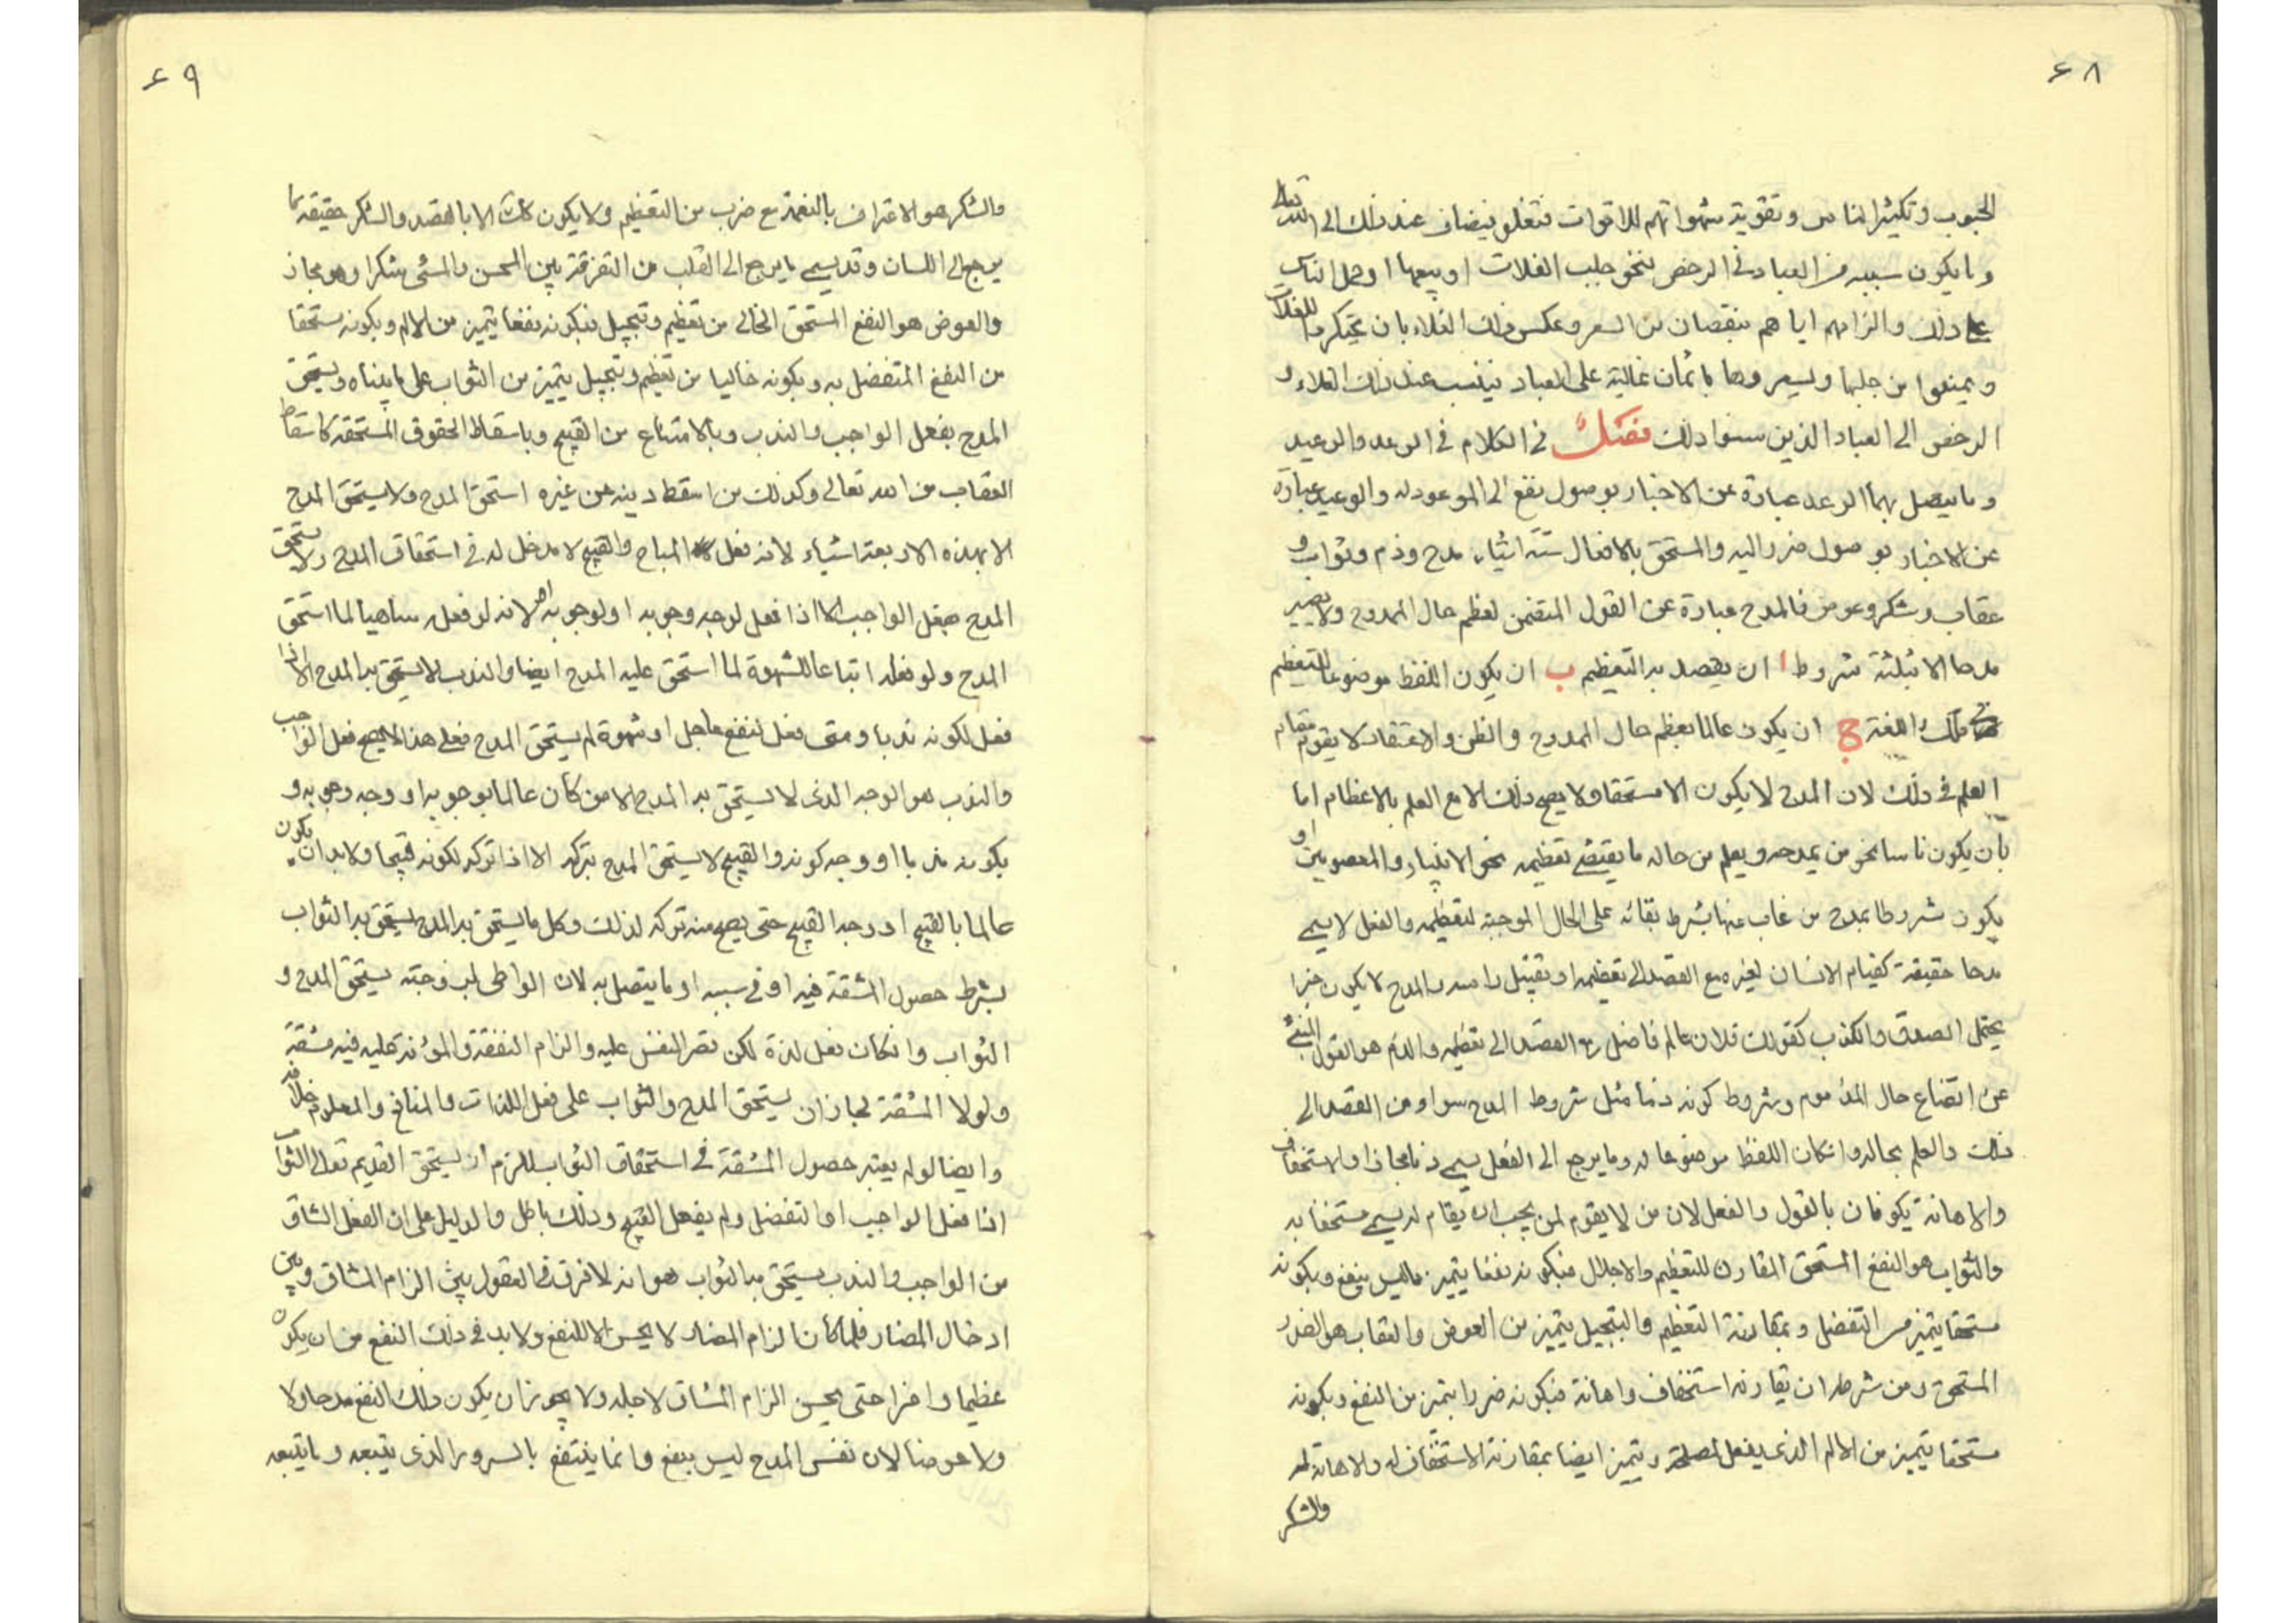 ۶۸
الحبوب وتكثير الناس وتقوية شهواتهم للاقوات فتغلو فيضاف عند ذلك الى الله تعالى
وما يكون سببه من العباد فى الرخص فنحو جلب الغلات او بيعها او حمل الناس
على ذلك والزامهم اياهم بنقصان من السعر وعكس ذلك الغلاء بان يحتكروا للغلات
ويمنعوا من جلبها ويسعروها باثمان غالية على العباد فينسب عند ذلك الغلاء و
الرخص الى العباد الذين سببوا ذلك فصل فى الكلام فى الوعد والوعيد
وما يتصل بهما الوعد عبارة عن الاخبار بوصول نفع الى الموعود له والوعيد عبارة
عن الاخبار بوصول ضرر اليه والمستحق بالافعال ستة اشياء مدح وذم وثواب و
عقاب وشكر وعوض فالمدح عبارة عن القول المتضمن لعظم حال الممدوح ولا يصير
مدحا الا بثلثة شروط ا ان يقصد به التعظيم ب ان يكون اللفظ موضوعا للتعظيم
فى تلك اللغة ج ان يكون عالما بعظم حال الممدوح والظن والاعتقاد لا يقوم مقام
العلم فى ذلك لان المدح لا يكون الا مستحقا ولا يصح ذلك الا مع العلم بالاعظام اما
بان يكون ناسا نحو من يمدحه ويعلم من حاله ما يقتضى تعظيمه نحو الانبياء والمعصومين او
يكون مشروطا بمدح من غاب عنها بشرط بقائه على الحال الموجبة لتعظيمه والفعل لا يسمى
مدحا حقيقة كقيام الانسان لغيره مع القصد الى تعظيمه او تقبيل راسه والمدح لا يكون خبرا
يحتمل الصدق والكذب كقولك فلان عالم فاضل مع القصد الى تعظيمه والذم هو القول المنبئ
عن اتضاع حال المذموم وشروط كونه ذما مثل شروط المدح سواء من القصد الى
ذلك والعلم بحاله وان كان اللفظ موضوعا له وما يرجع الى الفعل يسمى ذما مجازا والاستخفاف
والاهانة يكونان بالقول والفعل لان من لا يقوم لمن يجب ان يقام له يسمى مستخفا به
والثواب هو النفع المستحق المقارن للتعظيم والاجلال فبكونه نفعا يتميز مما ليس بنفع وبكونه
مستحقا يتميز من التفضل وبمقارنة التعظيم والتبجيل يتميز من العوض والعقاب هو الضرر
المستحق ومن شرطه ان يقارنه استخفاف واهانة فبكونه ضررا يتميز من النفع وبكونه
مستحقا يتميز من الالم الذى يفعل لمصلحة ويتميز ايضا بمقارنة الاستخفاف له والاهانة له
والشكر
۶۹
والشكر هو الاعتراف بالنعمة مع ضرب من التعظيم ولا يكون كك الا بالقصد والشكر حقيقة ما
يرجع الى اللسان وقد يسمى ما يرجع الى القلب من التفرقة بين المحسن والمسئ شكرا وهو مجاز
والعوض هو النفع المستحق الخالى من تعظيم وتبجيل فبكونه نفعا يتميز من الالم وبكونه مستحقا
من النفع المتفضل به وبكونه خاليا من تعظيم وتبجيل يتميز من الثواب على ما بيناه ويستحق
المدح بفعل الواجب والندب وبالامتناع من القبيح وباسقاط الحقوق المستحقة كاسقاط
العقاب من الله تعالى وكذلك من اسقط دينه عن غيره استحق المدح ولا يستحق المدح
الا بهذه الاربعة اشياء لانه فعل المباح والقبيح لا مدخل له فى استحقاق المدح ولا يستحق
المدح بفعل الواجب الا اذا فعل لوجه وجوبه او لوجوبه لانه لو فعله ساهيا لما استحق
المدح ولو فعله اتباعا للشهوة لما استحق عليه المدح ايضا والندب لا يستحق به المدح الا اذا
فعل لكونه ندبا ومتى فعل لنفع عاجل او شهوة لم يستحق المدح فعلى هذا لا يصح فعل الواجب
والندب هو الوجه الذى لا يستحق به المدح الا من كان عالما بوجوبه او وجه وجوبه و
بكونه ندبا او وجه كونه والقبيح لا يستحق المدح بتركه الا اذا تركه لكونه قبيحا ولا بد ان يكون
عالما بالقبيح او وجه القبيح حتى يصح منه تركه لذلك وكل ما يستحق به المدح يستحق به الثواب
بشرط حصول المشقة فيه او فى سببه او ما يتصل به لان الواطى لزوجته يستحق المدح و
الثواب وان كان فعل لذة لكن قصر النفس عليه والزام النفقة والمؤنة عليه فيه مشقة
ولولا المشقة لجاز ان يستحق المدح والثواب على فعل اللذات والمنافع والمعلوم خلافه
وايضا لو لم يعتبر حصول المشقة فى استحقاق الثواب للزم ان يستحق القديم تعالى الثواب
اذا فعل الواجب او التفضل ولم يفعل القبيح وذلك باطل والدليل على ان الفعل الشاق
من الواجب والندب يستحق به الثواب هو انه لا فرق فى العقول بين الزام المشاق وبين
ادخال المضار فلما كان الزام المضار لا يحسن الا للنفع ولا بد فى ذلك النفع من ان يكون
عظيما وافرا حتى يحسن الزام المشاق لاجله ولا يجوز ان يكون ذلك النفع مدحا ولا
ولا عوضا لان نفس المدح ليس بنفع وانما ينتفع بالسرور الذى يتبعه وما يتبعه